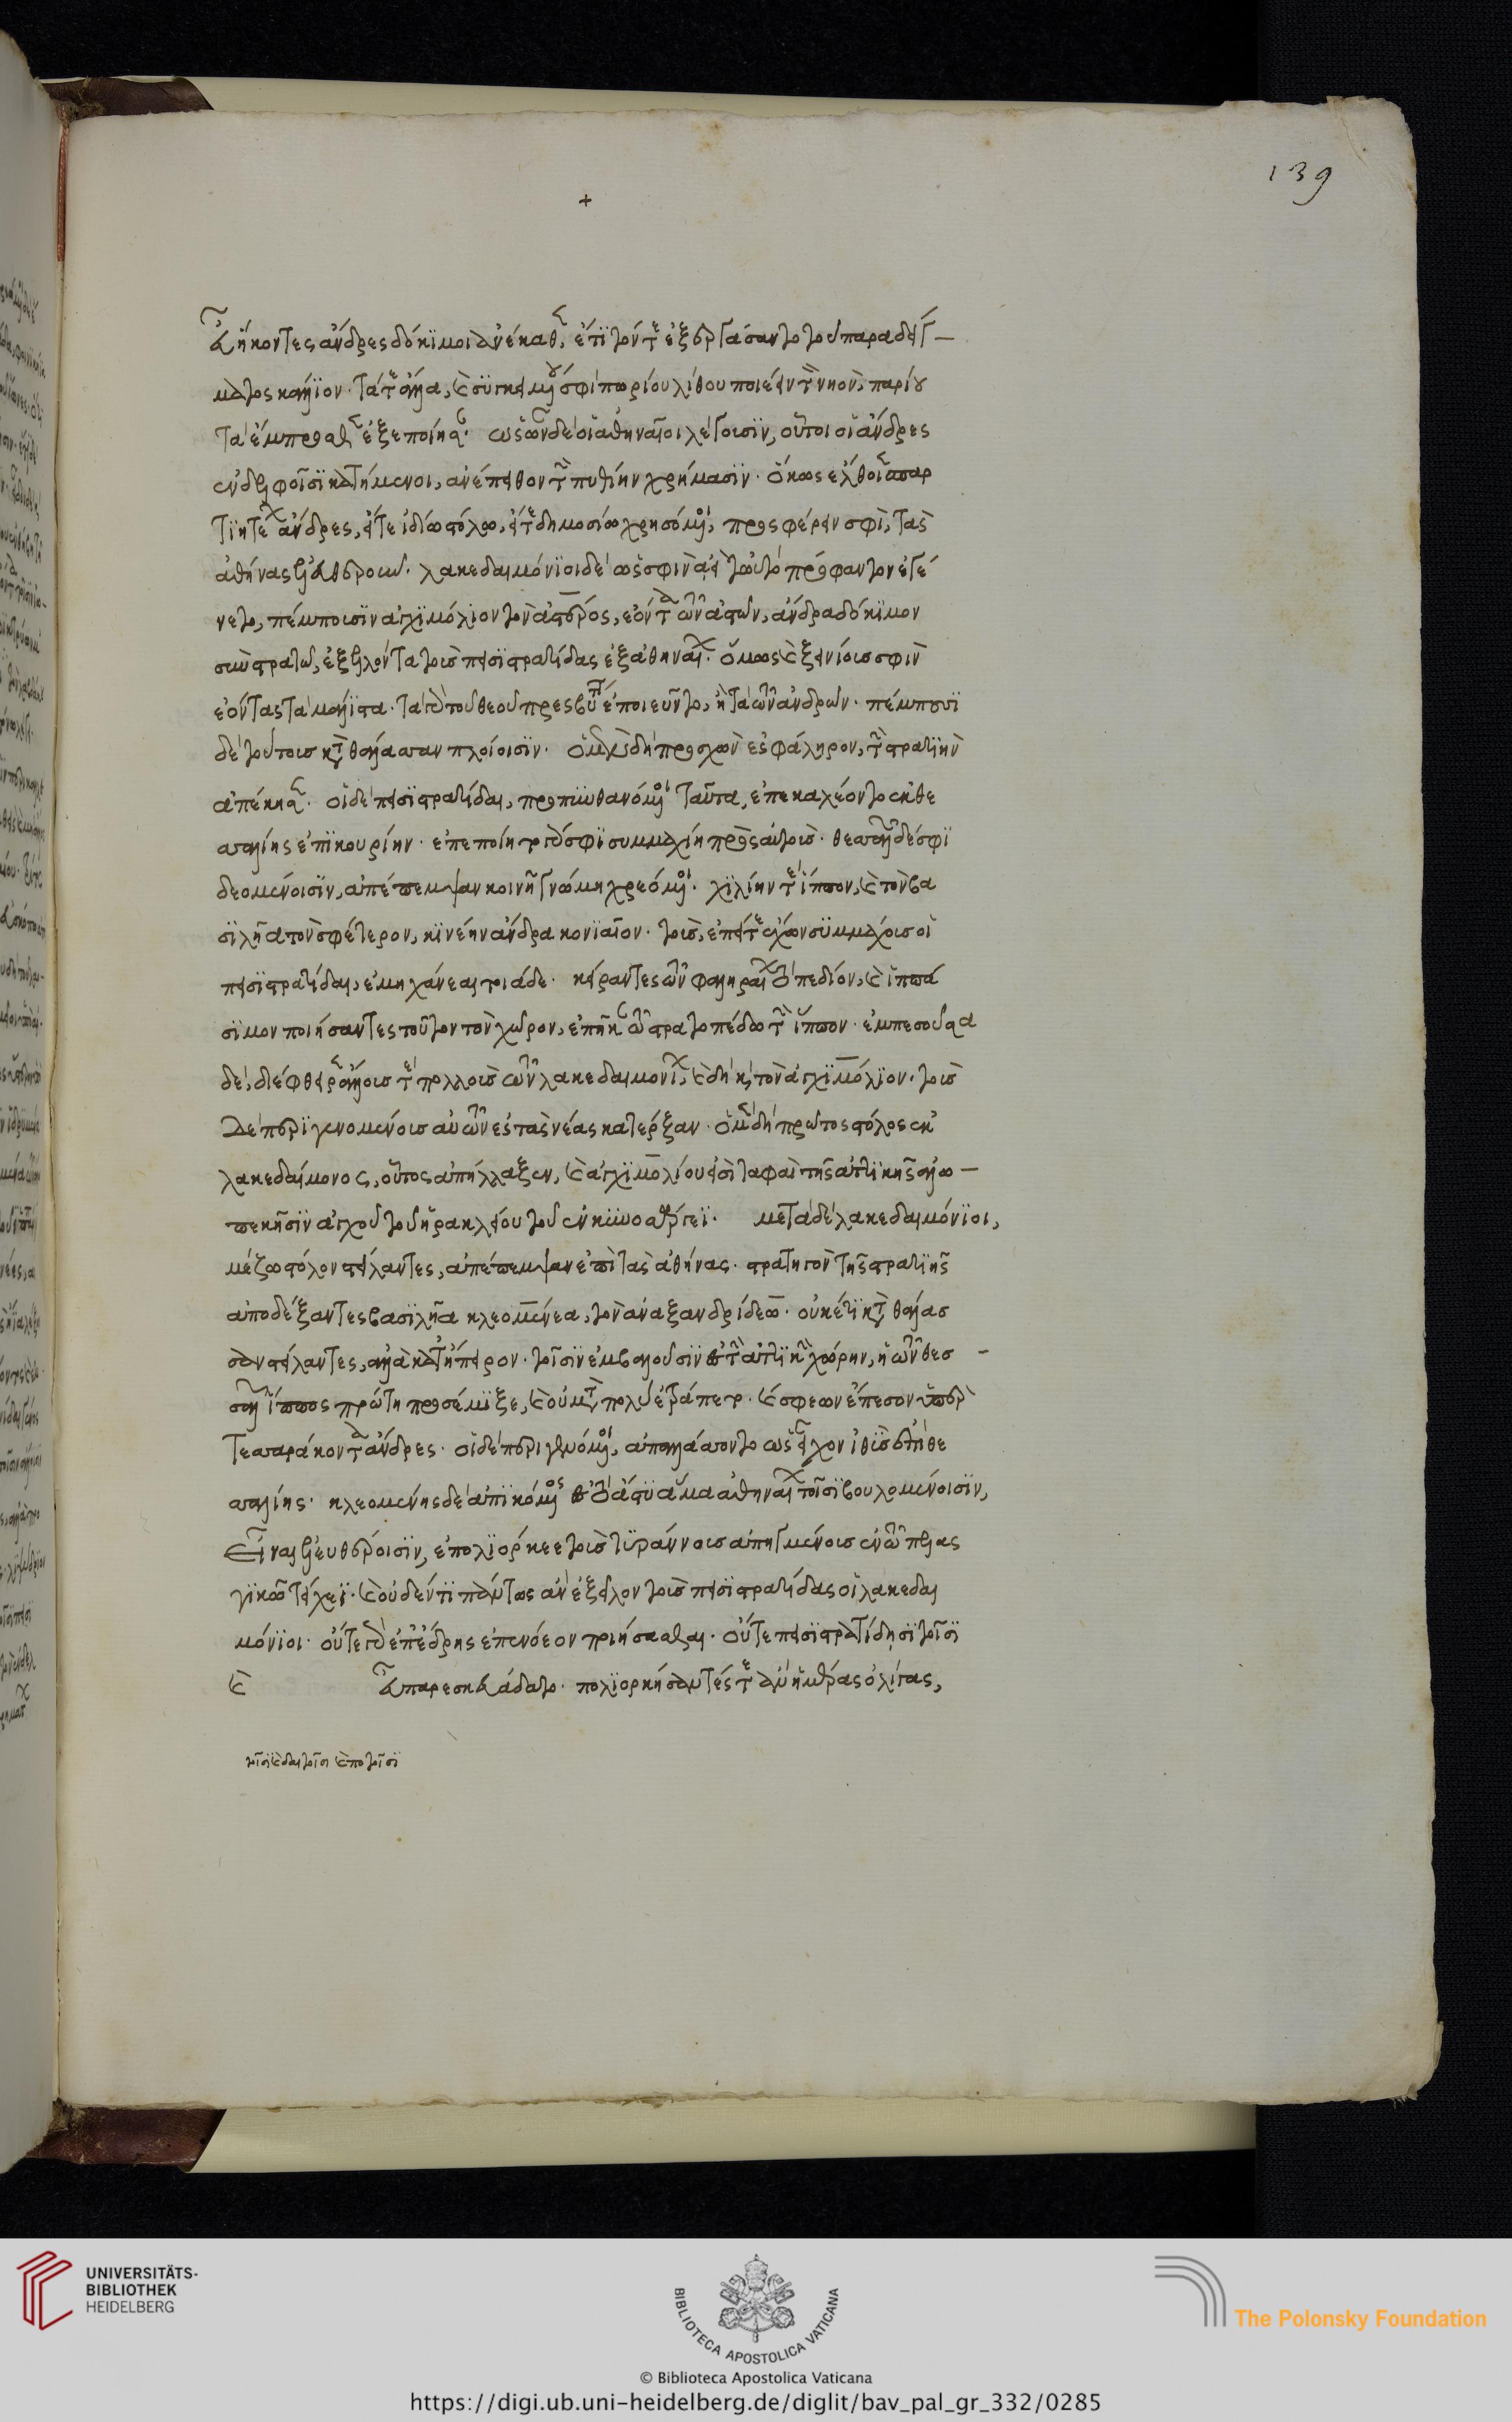 εὖ ἥκοντες ἄνδρες δόκϊμοι ἀνέκαθεν ἔτϊ τόν τε ἐξεργάσαντο τοῦ παραδείγ-
ματος κάλλϊον· τά τε ἄλλα, καὶ συγκειμένου σφὶ πωρίου λίθου ποιέειν τὸν νηὸν, παρίου
τὰ ἔμπροσθεν ἐξεποίησαν. ὡς ὦν δὲ οἱ ἀθηναῖοι λέγουσϊν, οὗτοι οἱ ἄνδρες
ἐν δελφοῖσϊ κατήμενοι, ἀνέπειθον τὴν πυθίην χρήμασϊν· ὅκως ἔλθοιεν σπαρ
τϊητέων ἄνδρες, εἴτε ἰδίω στόλω, εἴτε δημοσίω χρησόμενοι, προσφέρειν σφὶ, τὰς
ἀθήνας ἐλευθεροῦν. λακεδαιμόνϊοι δὲ ὥς σφιν αἰεὶ τωὐτὸ πρόφαντον ἐγέ
νετο, πέμπουσϊν ἀγχϊμόλιον τὸν ἀστέρος, ἐόντα τῶν ἀστῶν, ἄνδρα δόκϊμον
σὺν στρατῶ, ἐξελόντα τοὺς πεισϊστρατίδας ἐξ ἀθηναίων. ὅμως καὶ ξεινίους σφὶν
ἐόντας τὰ μάλϊστα. τὰ γὰρ τοῦ θεοῦ πρεσβύτερα ἐποιεῦντο, ἢ τὰ τῶν ἀνδρῶν. πέμπουσϊ
δὲ τούτους κατὰ θάλασσαν πλοίοισϊν. ὁ μὲν δὴ προσχὼν ἐς φάληρον, τὴν στρατϊὴν
ἀπέβησεν. οἱ δὲ πεισϊστρατίδαι, προπϋνθανόμενοι ταῦτα, ἐπεκαλέοντο ἐκ θε
σσαλίης ἐπϊκουρίην. ἐπεποίητο γὰρ σφϊ συμμαχίη πρὸς αὐτούς. θεσσαλοὶ δέ σφϊ
δεομένοισϊν, ἀπέπεμψαν κοινῆ γνώμη χρεόμενοι. χϊλίην τε ἵππον, καὶ τὸν βα
σϊλῆα τὸν σφέτερον, κϊνέην ἄνδρα κονϊαῖον. τοὺς, ἐπεί τε ἔσχον σϋμμάχους οἱ
πεισϊστρατίδαι, ἐμηχανέατο τοιάδε. κείραντες τῶν φαληραίων τὸ πεδίον, καὶ ἱππά
σϊμον ποιήσαντες τοῦτον τὸν χῶρον, ἐπῆκαν τῶ στρατοπέδω τὴν ἵππον. ἐμπεσοῦσα
δὲ, διέφθειρεν ἄλλους τε πολλοὺς τῶν λακεδαιμονίων, καὶ δὴ καὶ τὸν ἀγχϊμόλϊον. τοὺς
δὲ περϊγενομένους αὐτῶν ἐς τὰς νέας κατεῖρξαν. ὁ μὲν δὴ πρῶτος στόλος ἐκ
λακεδαίμονος, οὕτως ἀπήλλαξεν, καὶ ἀγχϊμολίου εἰσὶ ταφαὶ τῆς ἀττϊκῆς ἀλω-
πεκῆσϊν ἀγχοῦ τοῦ ἡρακλείου τοῦ ἐν κϋνοσάργεϊ. μετὰ δὲ λακεδαιμόνϊοι,
μέζω στόλον στείλαντες, ἀπέπεμψαν ἐπὶ τὰς ἀθήνας. στρατηγὸν τῆς στρατϊῆς
ἀποδέξαντες βασϊλῆα κλεομένεα, τὸν ἀναξανδρίδεω. οὐκέτϊ κατὰ θάλασ
σαν στείλαντες, ἀλλὰ κατ' ἤπειρον. τοῖσϊν ἐμβαλοῦσϊν ἐς τὴν ἀττϊκὴν χώρην, ἡ τῶν θεσ-
σαλῶν ἵππος πρώτη προσέμϊξε, καὶ οὐ μετὰ πολὺ ἐτράπετο. καὶ σφεων ἔπεσον ὑπὲρ
τεσσαράκοντα ἄνδρες. οἱ δὲ περιγενόμενοι, ἀπαλλάσσοντο ὡς εἶχον ἰθὺς ἐπὶ θε
σσαλίης. κλεομένης δὲ ἀπϊκόμενος ἐς τὸ ἄστϋ ἅμα ἀθηναίων τοῖσϊ βουλομένοισϊν,
εἶναι ἐλευθέροισϊν, ἐπολϊόρκεε τοὺς τϋράννους ἀπηγμένους ἐν τῶ πελας
γϊκῶ τείχεϊ. καὶ οὐδέν τϊ πάντως ἂν ἐξεῖλον τοὺς πεισϊστρατίδας οἱ λακεδαι
μόνϊοι. οὔτε γὰρ ἐπέδρης ἐπενόεον ποιήσασθαι. οὔτε πεισϊστρατίδησϊ τοῖσϊ
καὶ εὖ παρεσκευάδατο. πολϊορκήσαντές τε ἂν ἡμέρας ὀλίγας,
τοῖσϊ καὶ σϊτοῖσι καὶ ποτοῖσϊ
139
UNIVERSITÄTS-
BIBLIOTHEK
HEIDELBERG
BIBLIOTECA APOSTOLICA VATICANA
The Polonsky Foundation
© Biblioteca Apostolica Vaticana
https://digi.ub.uni-heidelberg.de/diglit/bav_pal_gr_332/0285